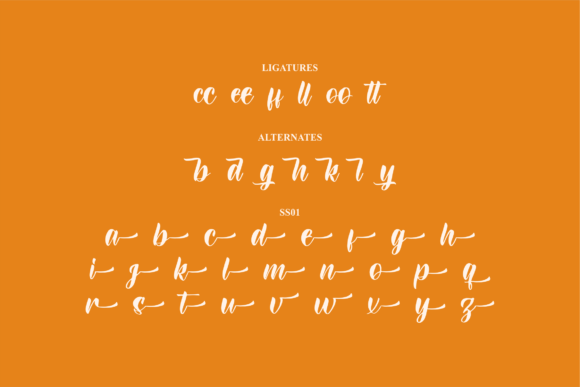 LIGATURES
cc ee ff ll oo tt
ALTERNATES
b d g h k l y
SS01
a b c d e f g h
i j k l m n o p q
r s t u v w x y z